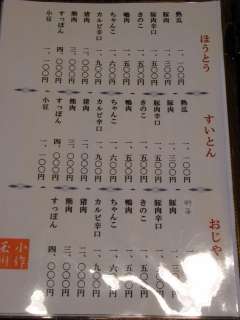 ほうとう
熟瓜 一、一〇〇円
豚肉 一、三〇〇円
豚肉辛口 一、五〇〇円
きのこ 一、五〇〇円
鴨肉 一、五〇〇円
ちゃんこ 一、六〇〇円
カルビ辛口 一、九〇〇円
猪肉
熊肉 三、〇〇〇円
すっぽん 四、〇〇〇円
小豆
すいとん
熟瓜 一、一〇〇円
豚肉 一、三〇〇円
豚肉辛口 一、五〇〇円
きのこ 一、五〇〇円
鴨肉 一、五〇〇円
ちゃんこ 一、六〇〇円
カルビ辛口 一、九〇〇円
猪肉
熊肉 三、〇〇〇円
すっぽん 四、〇〇〇円
小豆
おじや
豚肉
豚肉辛口
きのこ 一、五〇〇円
鴨肉 一、五〇〇円
ちゃんこ 一、六〇〇円
カルビ辛口 一、九〇〇円
猪肉
熊肉 三、〇〇〇円
すっぽん 四、〇〇〇円
小作